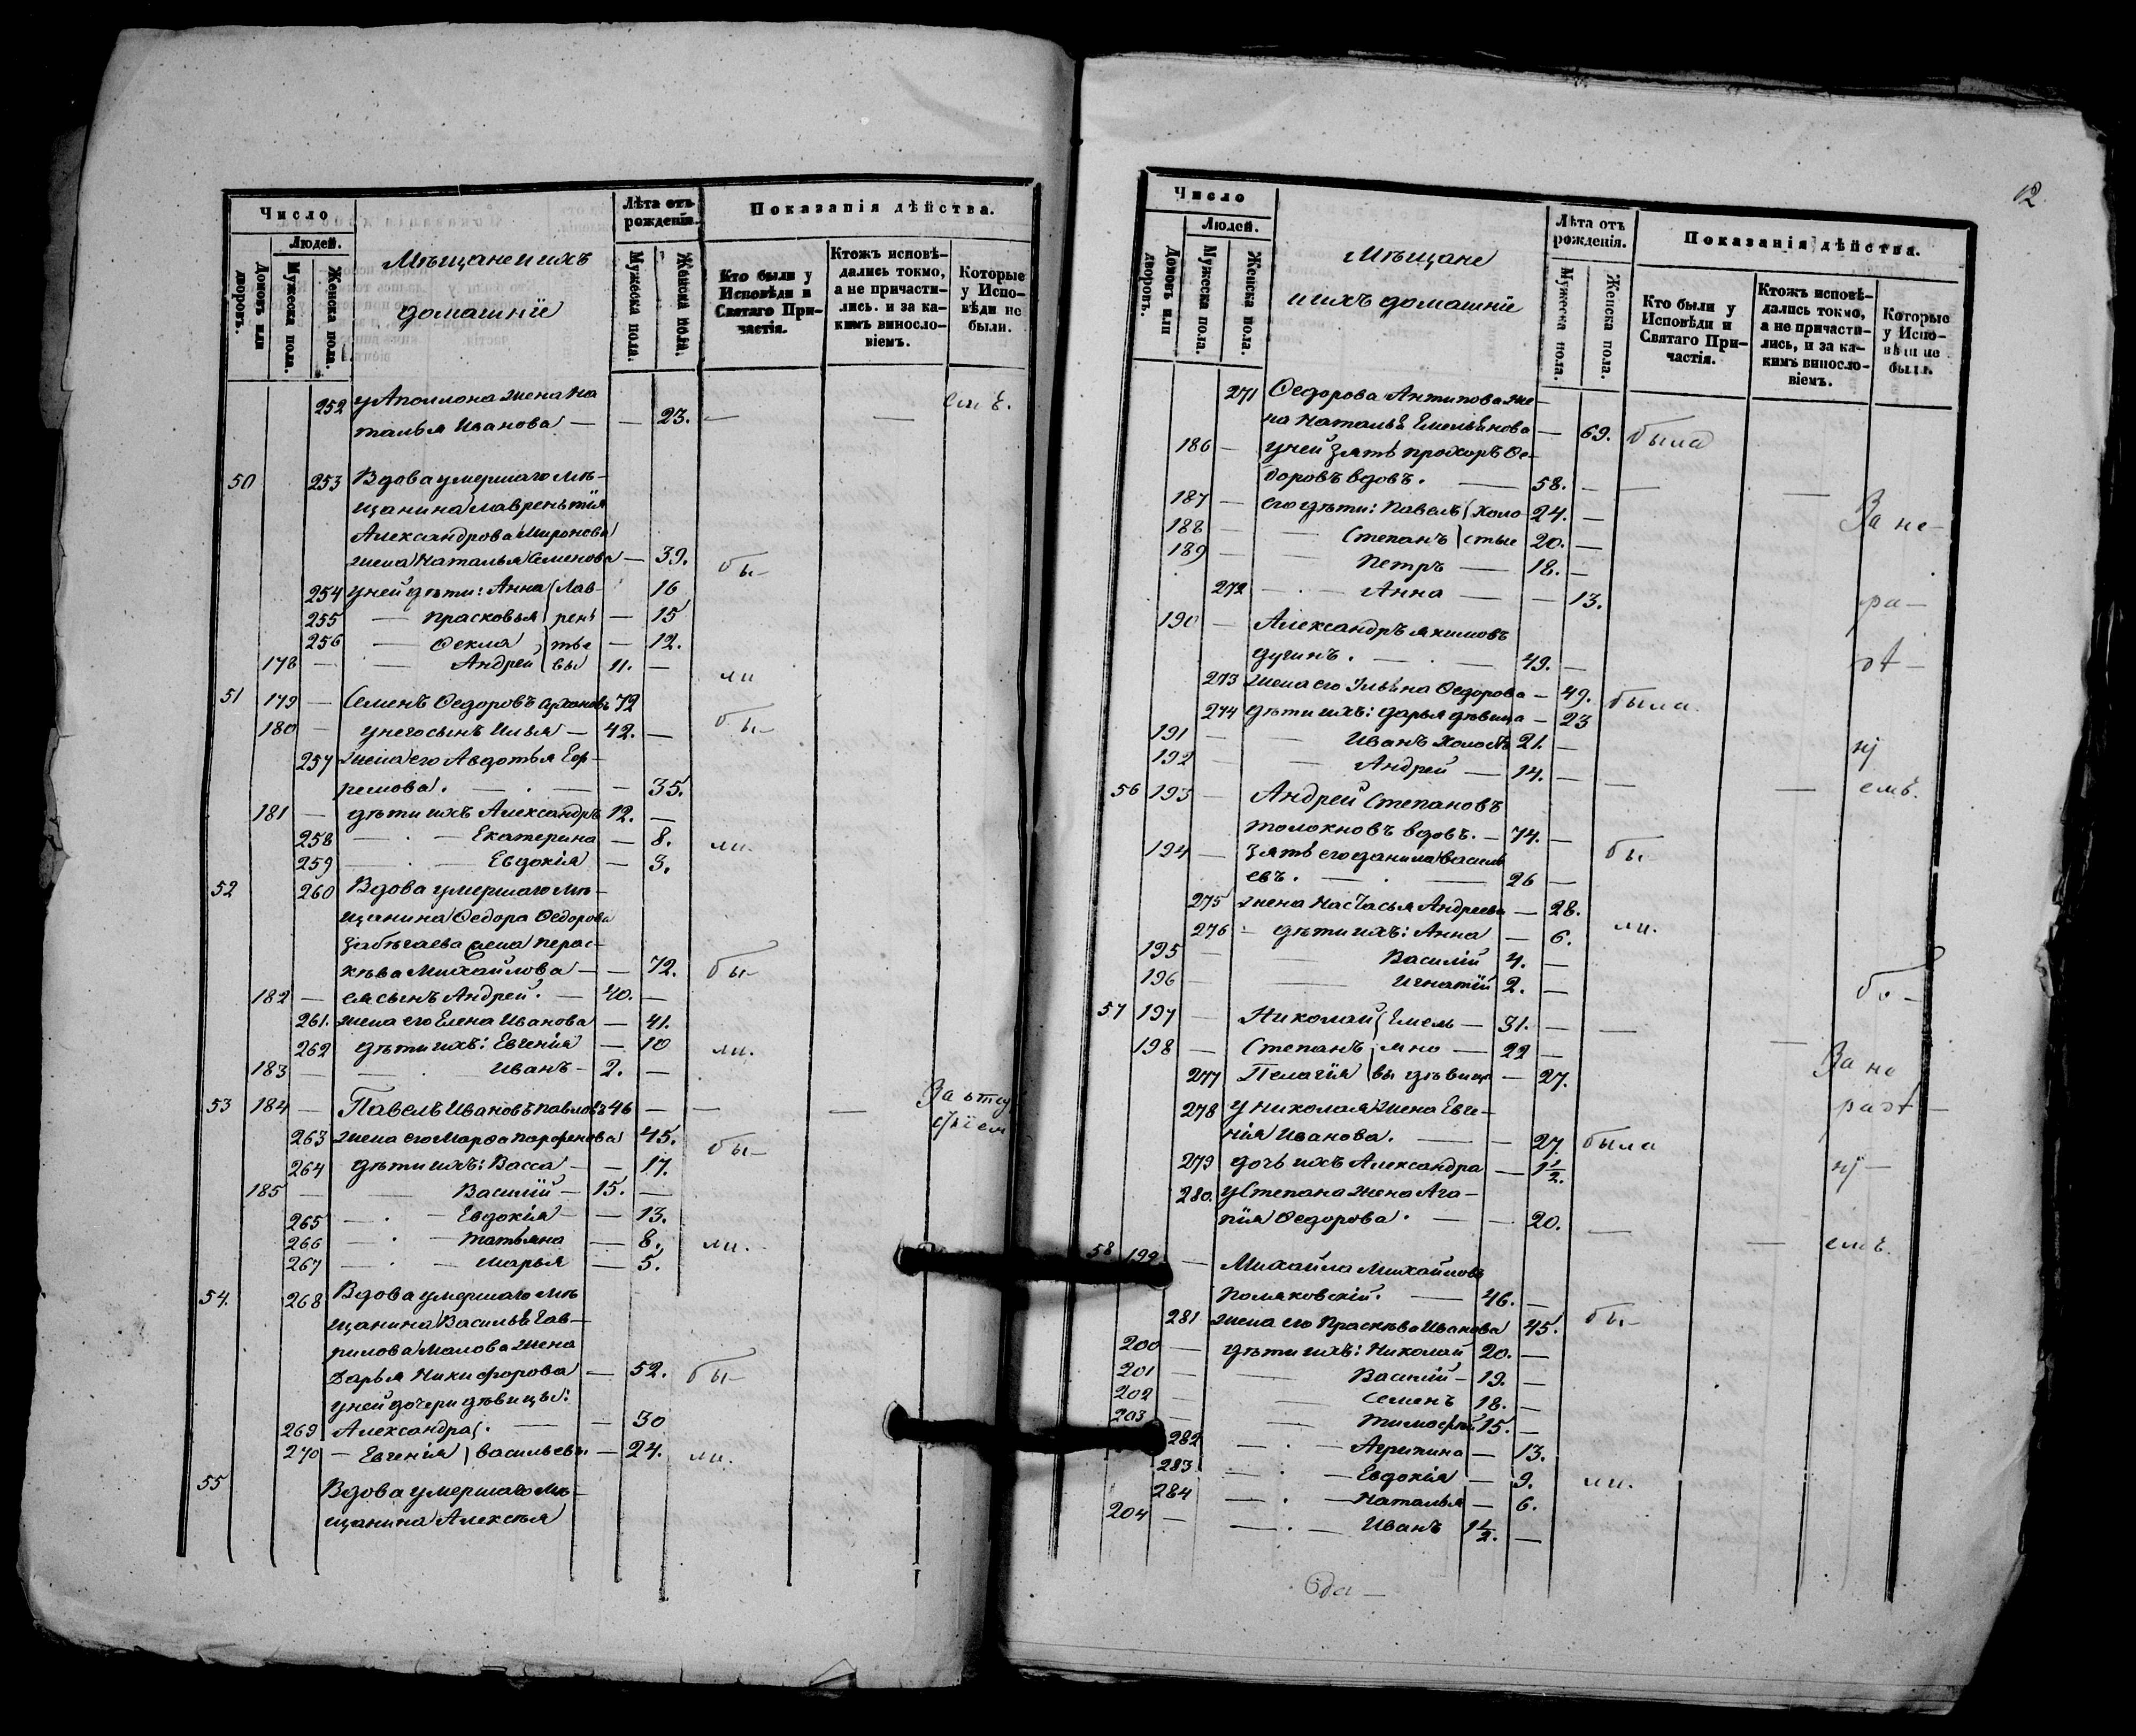 Число
Людей.
Домовъ или дворовъ.
Мужеска пола.
Женска пола.
Мѣщане и ихъ
домашніе
Лѣта отъ рожденія.
Мужеска пола.
Женска пола.
Показанія дѣйства.
Кто были у Исповѣди и Святаго Причастія.
Ктожъ исповѣдались токмо, а не причастились. и за какимъ винословіемъ.
Которые у Исповѣди не были.
252 у Аполлона жена На
талья Иванова — — 23. — — емъ.
50 253 Вдова умершаго мѣ-
щанина Лаврентія
Александрова Миронова
жена Наталья Семенова — 39. бы-
254 у ней дѣти: Анна Лав- 16
255 — Прасковья рень — 15
256 — Фекла тье — 12.
178 — — Андрей вы 11. — ли
51 179 — Семенъ Федоровъ 72
180 — у него сынъ Илья — 42. — бы-
257 жена его Авдотья Еф-
ремова. — . — — 35.
181 — дѣти ихъ Александръ 12. —
258 — . — Екатерина — 8. ли.
259 — . — Евдокія — 3.
52 260 Вдова умершаго мѣ-
щанина Федора Федорова
жена Парас-
кѣва Михайлова — — 72. бы-
182 — ея сынъ Андрей. — 40. —
261. жена его Елена Иванова — 41.
262 дѣти ихъ: Евгенія — 10 ли.
183 — — . Иванъ — 2. —
53 184 — Павелъ Ивановъ Павловъ 46 — — — За отлу
263 жена его Марфа Парфенова 45. бы-
264 дѣти ихъ: Васса — — 17.
185 — — Василій — 15. —
265 — . — Евдокія — — 13.
266 — . — Татьяна — 8. ли.
267 — . — Марья — 5.
54. 268 Вдова умершаго мѣ
щанина Василья Гав-
рилова Малова жена
Дарья Никифорова — 52. бы-
у ней дочери дѣвицы:
269 Александра . — — 30
270 — Евгенія васильевы — 24. ли.
55 Вдова умершаго мѣ-
щанина Алексѣя
12.
Число
Людей.
Домовъ или дворовъ.
Мужеска пола.
Женска пола.
Мѣщане
и ихъ домашніе
Лѣта отъ рожденія.
Мужеска пола.
Женска пола.
Показанія дѣйства.
Кто были у Исповѣди и Святаго Причастія.
Ктожъ исповѣдались токмо, а не причастились, и за какимъ винословіемъ.
Которые у Исповѣди не были.
271 Федорова Антипова же-
на Наталья Емельянова — 69. была
186 — у ней зять Прохоръ Фе-
доровъ вдовъ. — 58. — — —
187 — его дѣти: Павелъ холо- 24. — За не-
188 — — Степанъ стые 20. —
189 — Петръ — 18. —
272 — . — Анна — — 13. ра-
190 — Александръ Якимовъ
Дугинъ. — . — 49. — дѣ-
273 жена его Ульяна Федорова — 49. была.
274 дѣти ихъ: Дарья дѣвица — 23
191 — — Иванъ холостъ 21. — ні
192 — — Андрей — 14. — — — емъ.
56 193 — Андрей Степановъ
Толокновъ вдовъ. — 74. — бы-
194 — зять его Данила Василь
евъ. — . — 26 —
275 жена Настасья Андреева — 28.
276 — дѣти ихъ: Анна — 6. ли.
195 — — Василій 4. —
196 — — Игнатій 2. —
57 197 — Николай Емель — 31. — — —
198 — Степанъ яно — 22 — За не
277 Пелагія вы дѣвица — 27. радѣ-
278 у Николая жена Евге-
нія Иванова. — — 27. была
279 дочь ихъ Александра — 1 1/2. ні-
280. у Степана жена Ага-
пія Федорова. — — 20. — — емъ.
58 199. — Михайла Михайловъ
Поляковскій. — 46. —
281 жена его Праскѣва Иванова 45. бы-
200 — дѣти ихъ: Николай 20. —
201 — — Василій — 19. —
202 — — Семенъ 18. —
203 — — Тимофей 15. —
282 — . — Агрипина — 13.
283 — . — Евдокія — 9. ли.
284 — . — Наталья — 6.
204 — — . — Иванъ 1 1/2. —